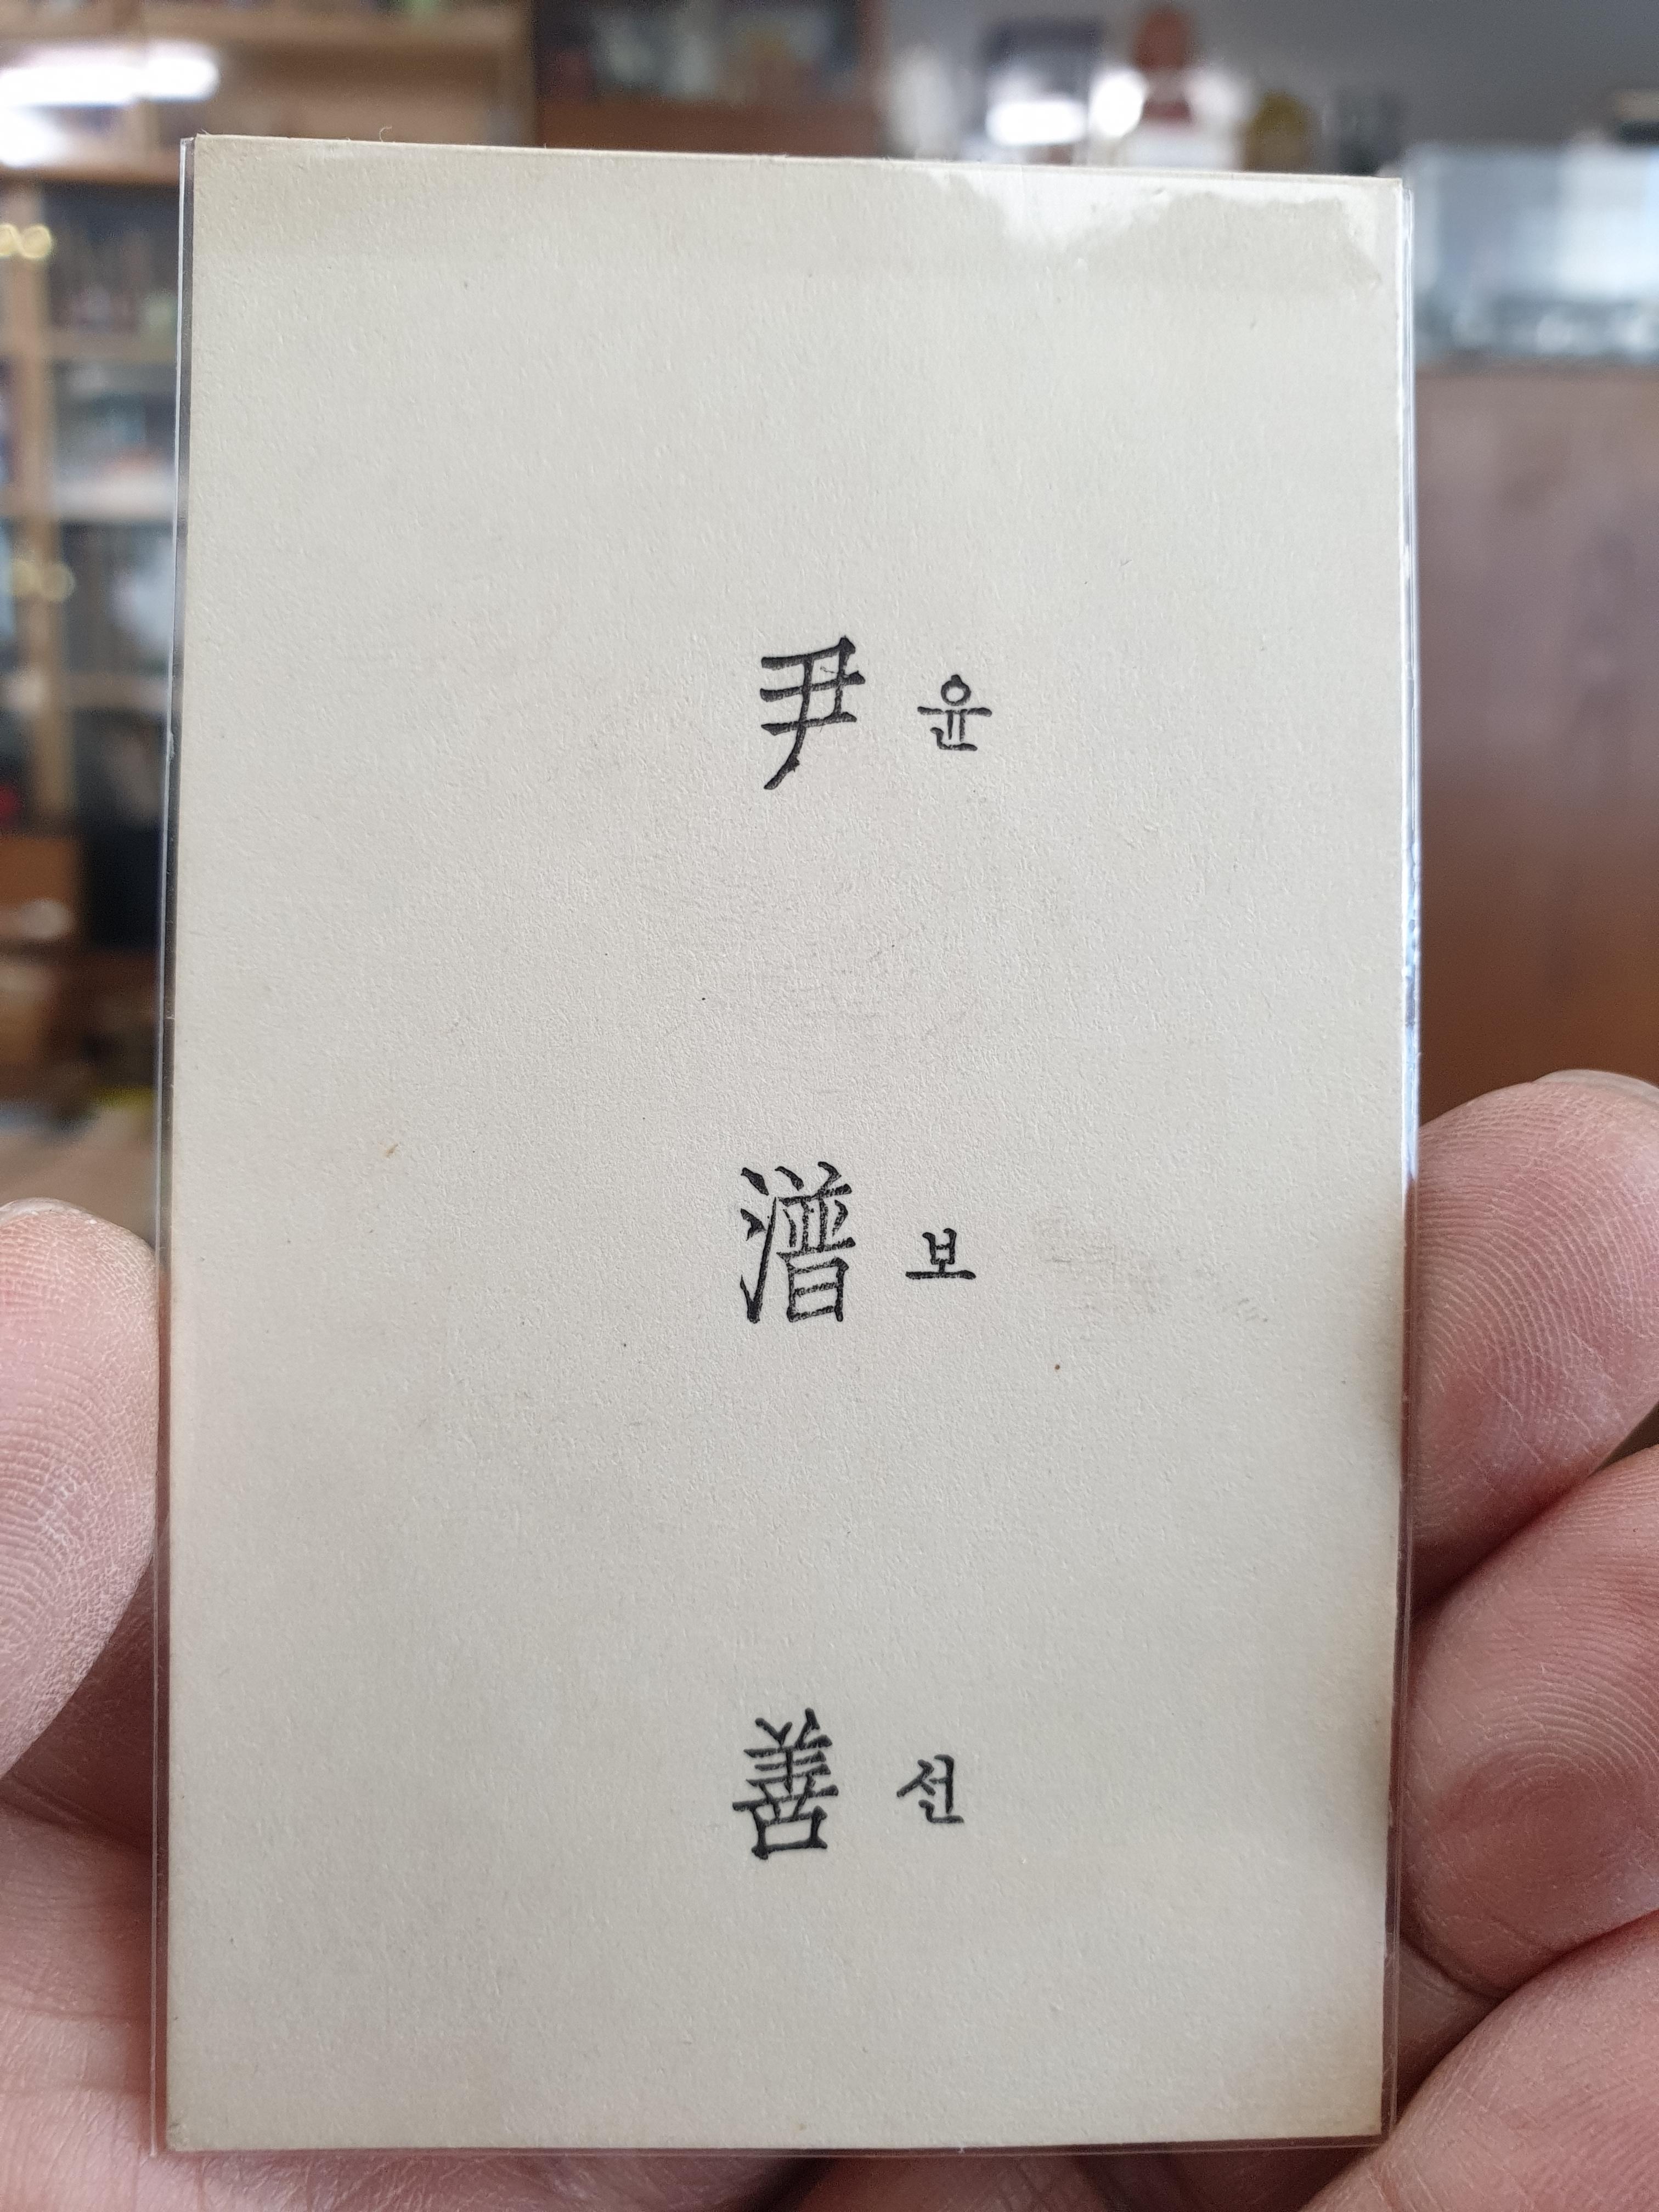 尹 윤
潽 보
善 선